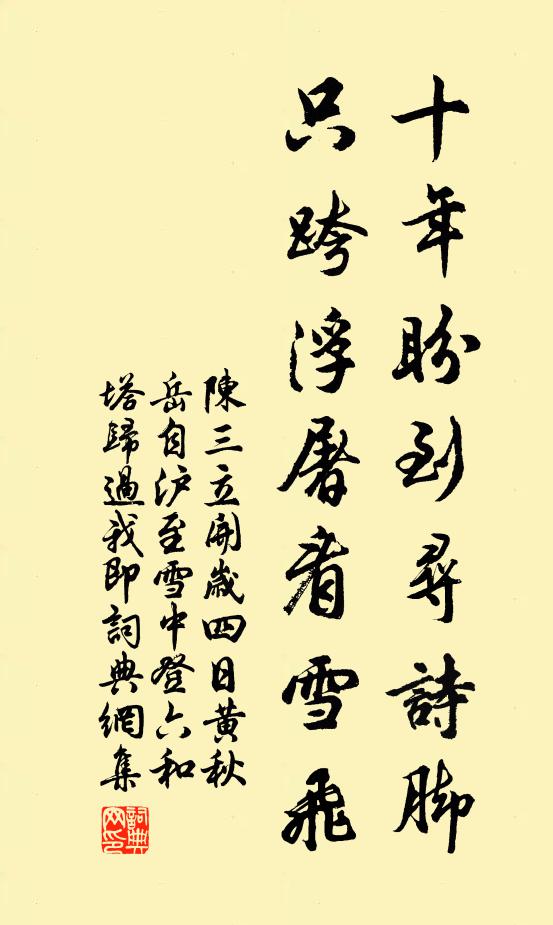 十年盼到尋詩脚
只跨浮屠看雪飛
陳三立開歲四日黄秋
岳自沪至雪中登六和
塔歸過我即詞典網集
詞典
网印